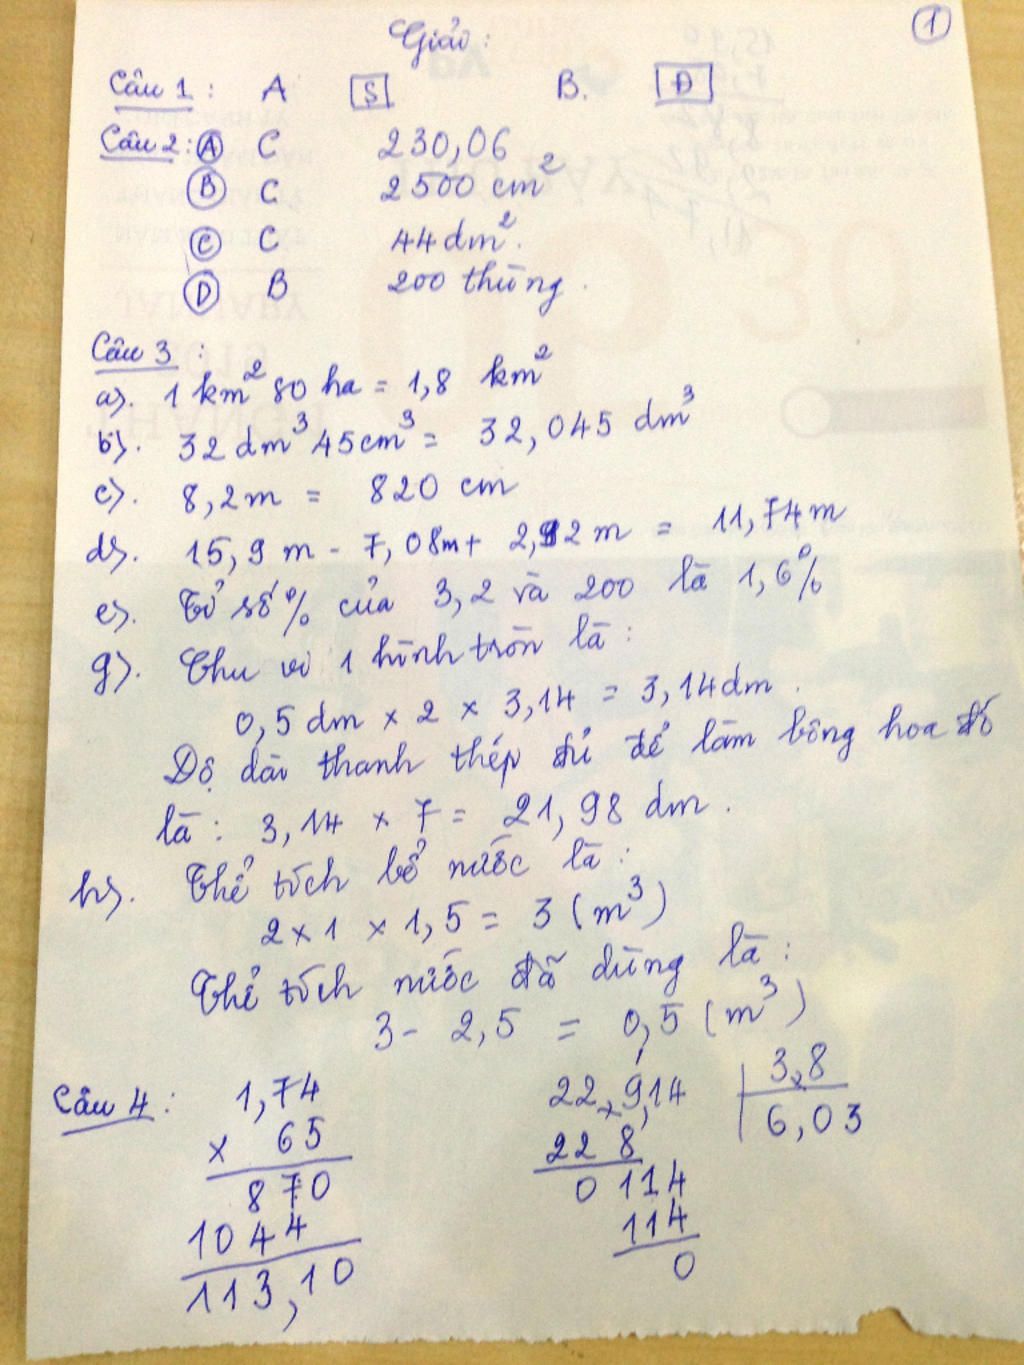 Giải:
1
Câu 1: A S B. Đ
Câu 2: A C 230,06
B C 2500 cm²
C C 44 dm².
D B 200 thùng.
Câu 3:
a). 1 km² 80 ha = 1,8 km²
b). 32 dm³ 45 cm³ = 32,045 dm³
c). 8,2 m = 820 cm
d). 15,9 m - 7,08 m + 2,92 m = 11,74 m
e). Tỉ số % của 3,2 và 200 là 1,6%
g). Chu vi 1 hình tròn là:
0,5 dm x 2 x 3,14 = 3,14 dm.
Độ dài thanh thép đủ để làm bông hoa đó
là: 3,14 x 7 = 21,98 dm.
h). Thể tích bể nước là:
2 x 1 x 1,5 = 3 (m³)
Thể tích nước đã dùng là:
3 - 2,5 = 0,5 (m³)
Câu 4: 1,74 22,9,14 3,8
x 65 228 6,03
870 0114
1044 114
113,10 0